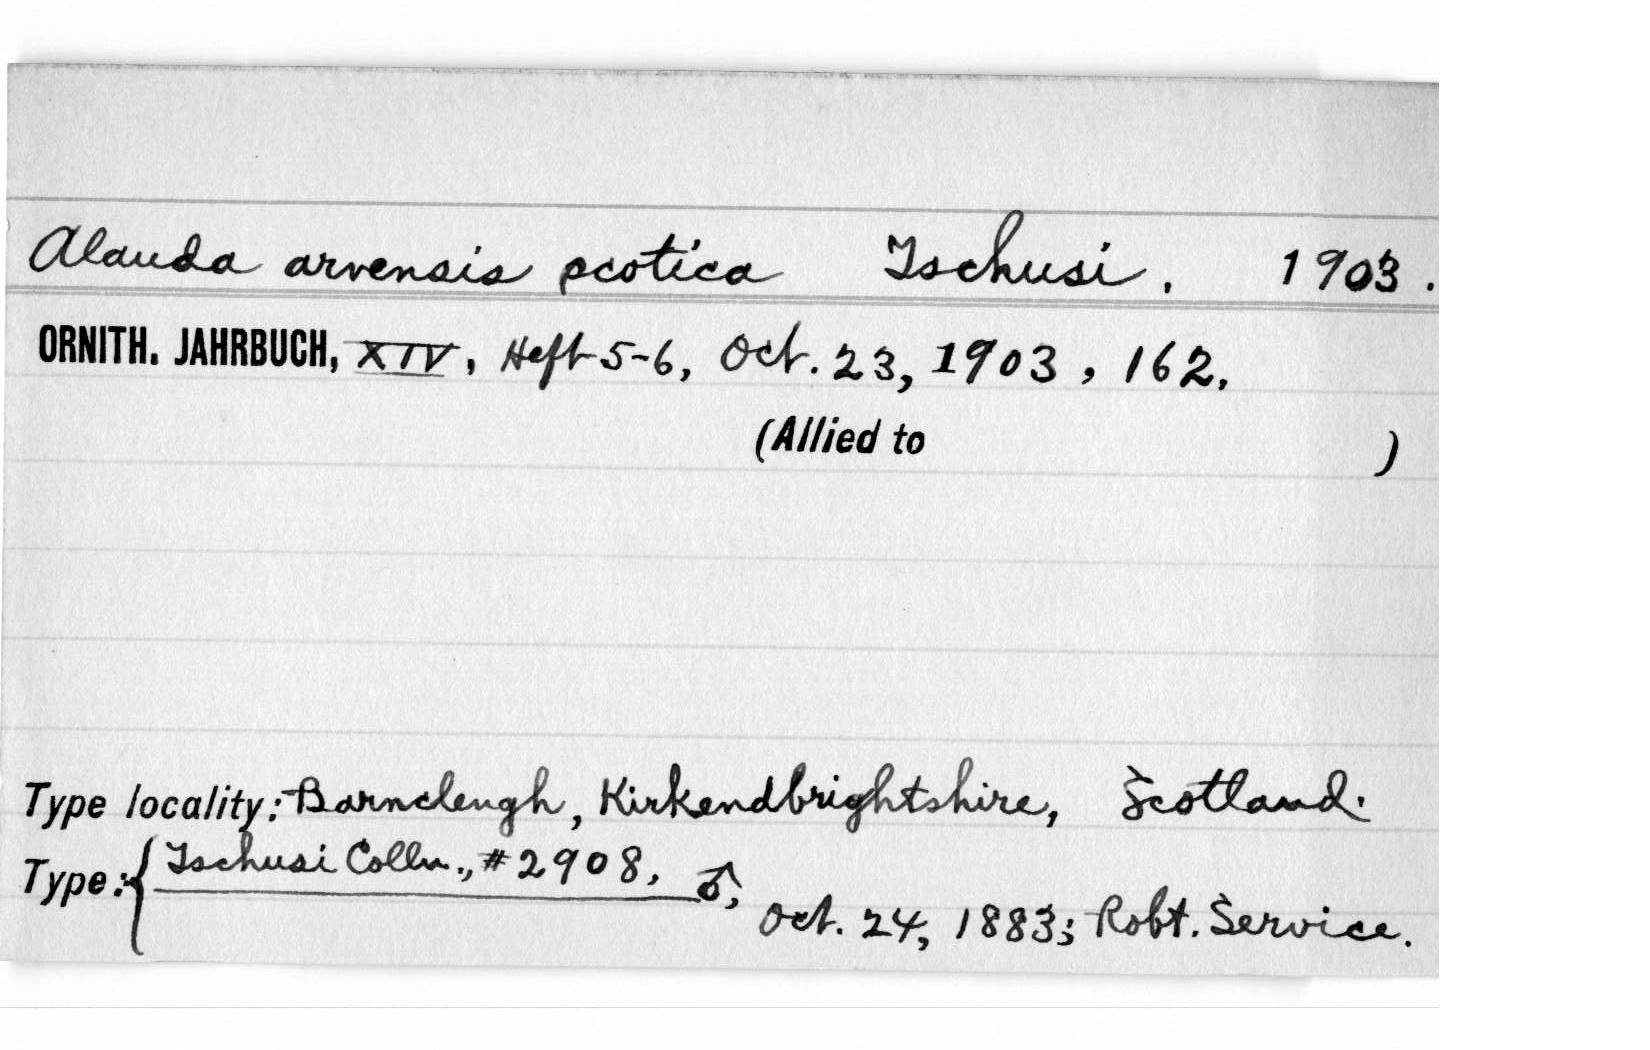 Alauda arvensis scotica Tschusi. 1903.
ORNITH. JAHRBUCH, XIV, Heft 5-6, Oct. 23, 1903, 162.
(Allied to )
Type locality: Barncleugh, Kirkendbrightshire, Scotland.
Type: { Tschusi Colln., #2908, ♂,
Oct. 24, 1883; Robt. Service.